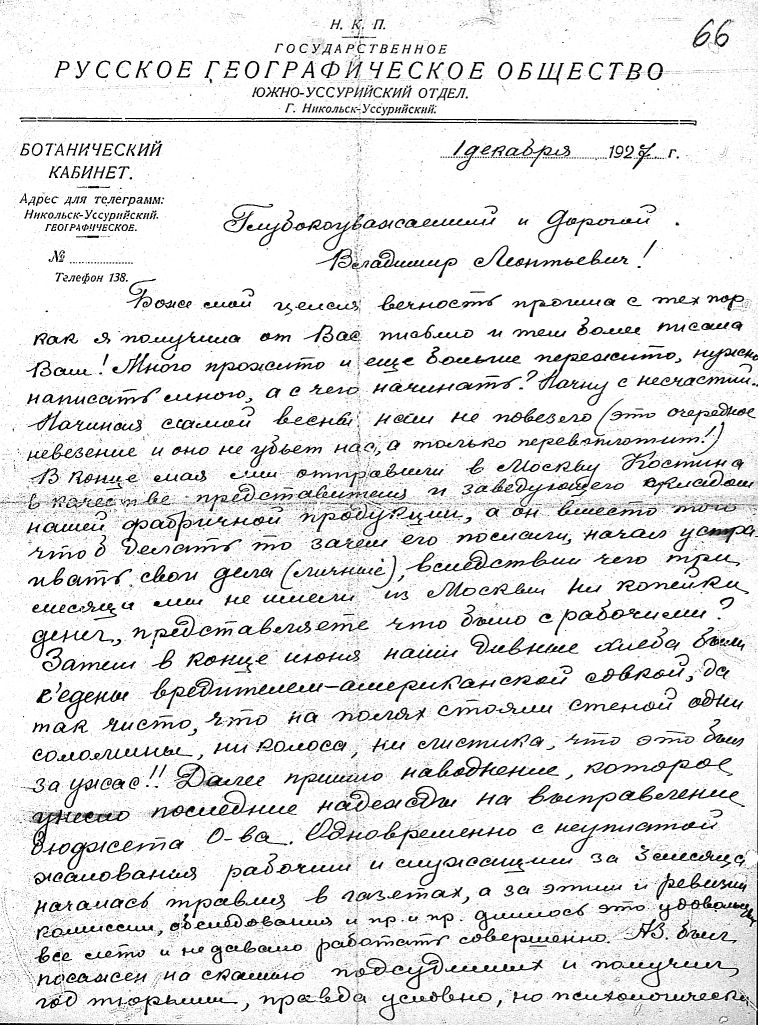 66
Н. К. П.
ГОСУДАРСТВЕННОЕ
РУССКОЕ ГЕОГРАФИЧЕСКОЕ ОБЩЕСТВО
ЮЖНО-УССУРИЙСКИЙ ОТДЕЛ.
Г. Никольск-Уссурийский.
БОТАНИЧЕСКИЙ
КАБИНЕТ.
Адрес для телеграмм:
Никольск-Уссурийский.
ГЕОГРАФИЧЕСКОЕ.
№
Телефон 138.
1 декабря 1927 г.
Глубокоуважаемый и дорогой
Владимир Леонтьевич!
Боже мой целая вечность прошла с тех пор
как я получила от Вас письмо и тем более писала
Вам! Много прожито и еще больше пережито, нужно
написать много, а с чего начинать? Начну с несчастий...
Начиная с самой весны нам не повезло (это очередное
невезение и оно не убьет нас, а только перевоплотит!)
В конце мая мы отправили в Москву Костина
в качестве представителя и заведующего складом
нашей фабричной продукции, а он вместо того
чтоб делать то зачем его послали, начал устра-
ивать свои дела (личные), вследствии чего три
месяца мы не имели из Москвы ни копейки
денег, представляете что было с рабочими?
Затем в конце июня наши дивные хлеба были
с'едены вредителем-американской совкой, да
так чисто, что на полях стояли стеной одни
соломины, ни колоса, ни листика, что это был
за ужас!! Далее пришло наводнение, которое
унесло последние надежды на выправление
бюджета О-ва. Одновременно с неуплатой
жалования рабочим и служащим за 3 месяца
началась травля в газетах, а за этим и ревизии
комиссии, обследования и пр. и пр. длилось это удовольствие
все лето и не давало работать совершенно. АЗ. был
посажен на скамью подсудимых и получил
год тюрьмы, правда условно, но психологически